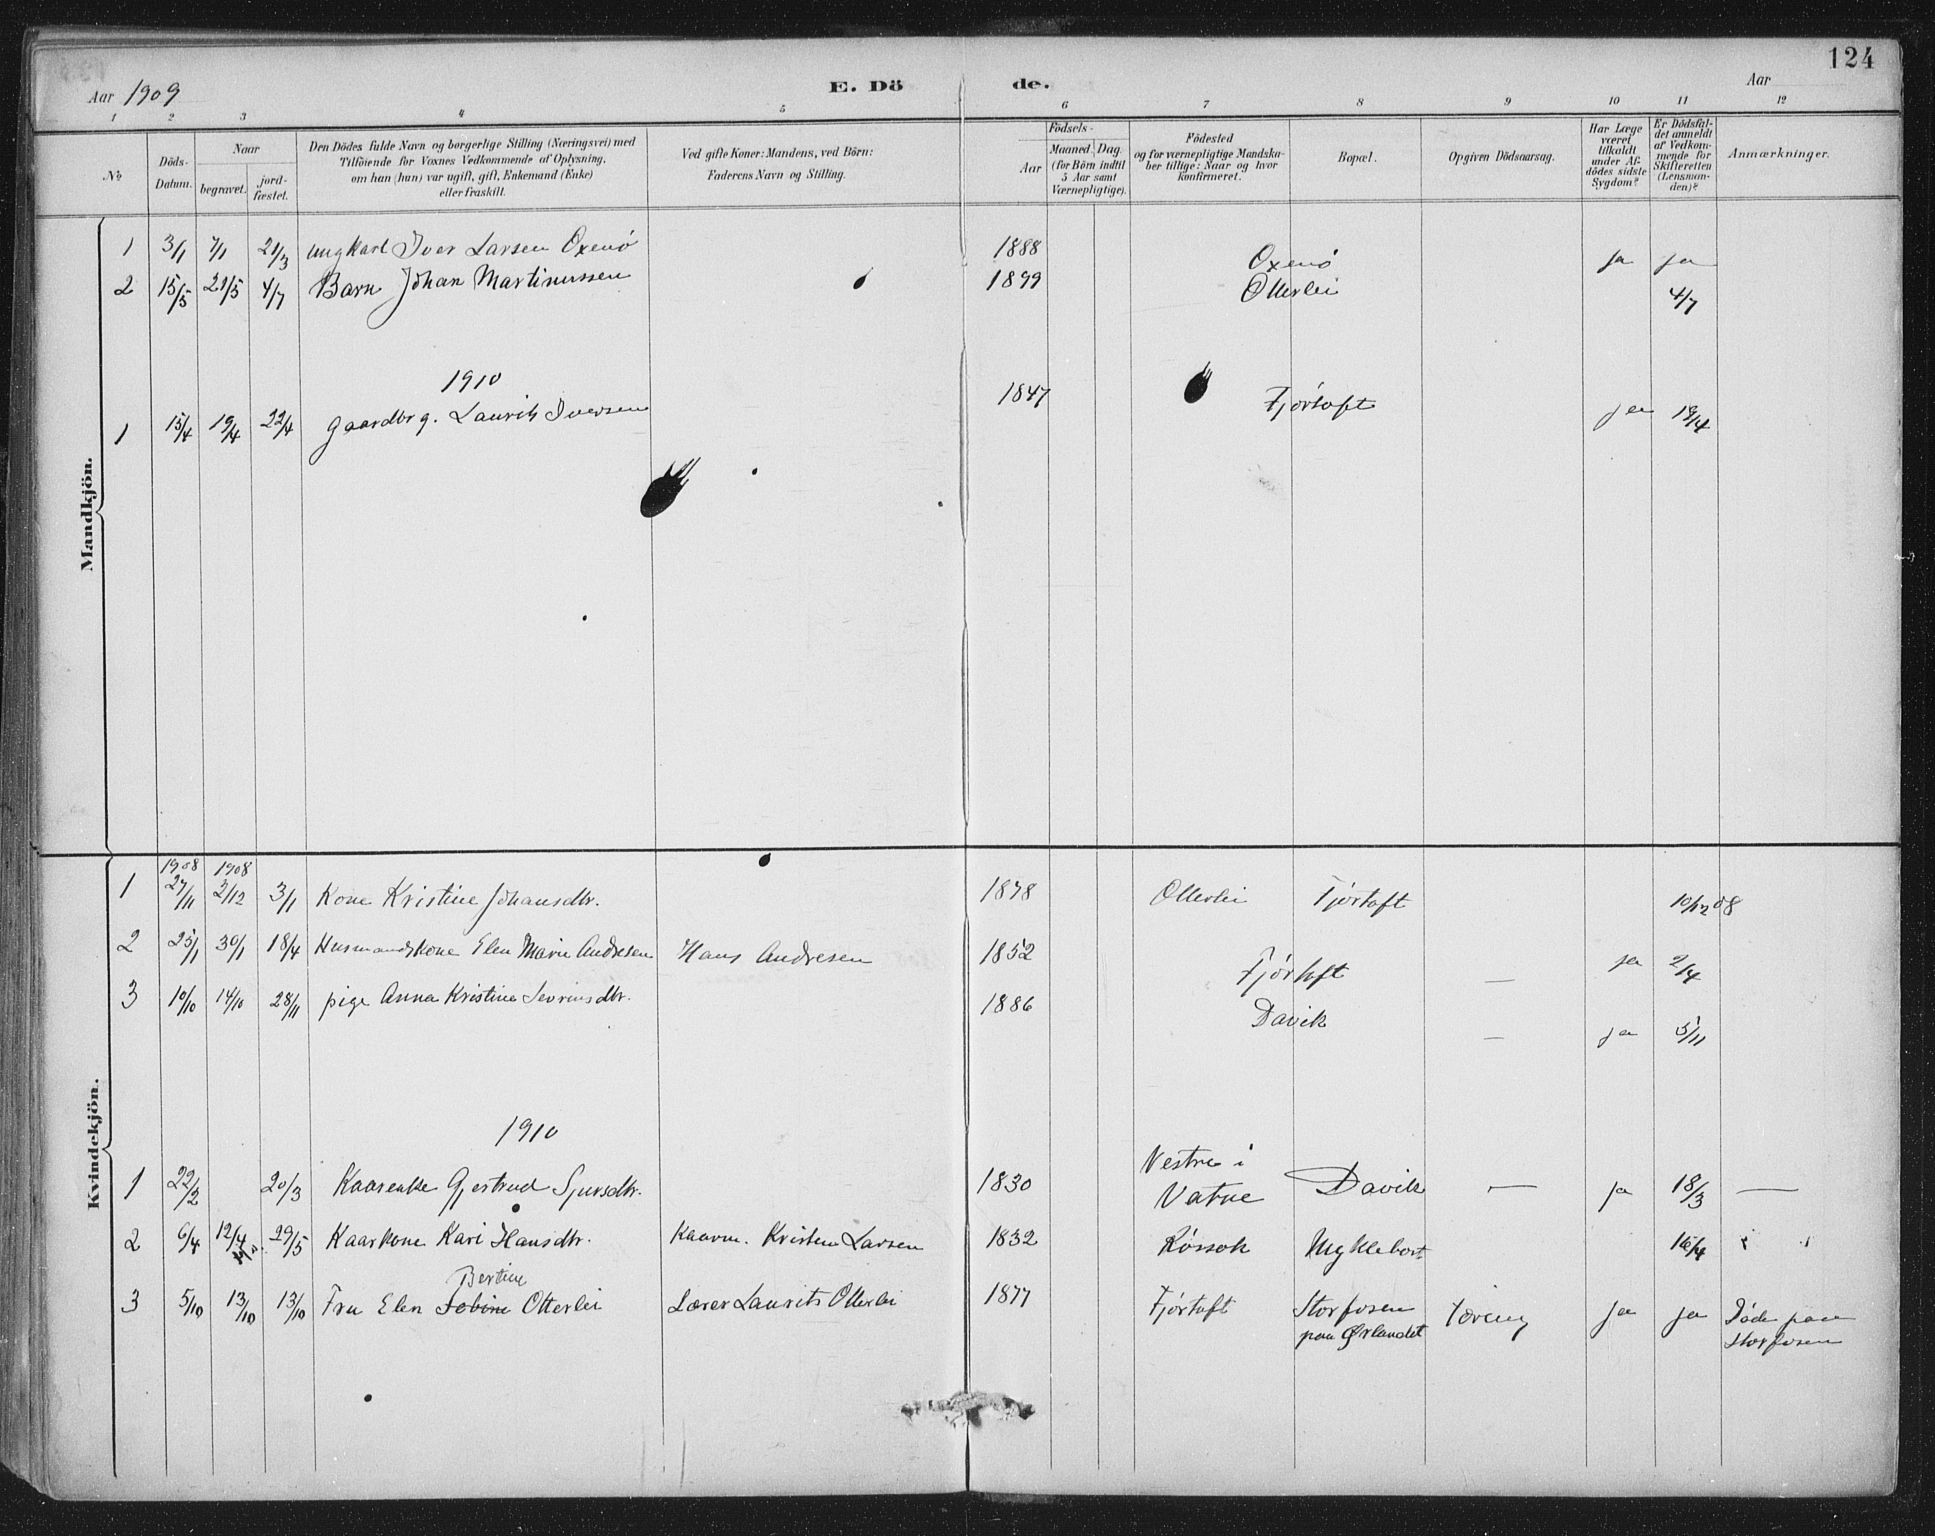 124
Aar 1909 E. Dö de. Aar
1 2 3 4 5 6 7 8 9 10 11 12
No
Döds-Datum.
Naar
begravet.
jord-fæstet.
Den Dödes fulde Navn og borgerlige Stilling (Næringsvei) med
Tilföiende for Voxnes Vedkommende af Oplysning,
om han (hun) var ugift, gift, Enkemand (Enke)
eller fraskilt.
Ved gifte Koner: Mandens, ved Börn:
Faderens Navn og Stilling.
Födsels-
Aar
Maaned. Dag.
(for Börn indtil
5 Aar samt
Værnepligtige).
Födested
og for værnepligtige Mandska-
ber tillige: Naar og hvor
konfirmeret.
Bopæl.
Opgiven Dödsaarsag.
Har Læge
været
tilkaldt
under Af-
dödes sidste
Sygdom?
Er Dödsfal-
det anmeldt
af Vedkom-
mende for
Skifteretten
(Lensman-
den)?
Anmærkninger.
Mandkjön.
1 3/1 7/1 21/3 ungkarl Iver Larsen Oxenö 1888 Oxenö ja ja
2 15/5 21/5 4/7 Barn Johan Martinussen 1899 Otterlei 4/7
1910
1 15/4 19/4 22/4 Gaardbrg. Laurits Iversen 1847 Fjörtoft ja 19/4
Kvindekjön.
1908 1908
1 27/11 2/12 3/1 Kone Kristine Johansdtr. 1878 Otterlei Fjörtoft 10/12 08
2 25/1 30/1 18/4 Husmandskone Elen Marie Andresen Hans Andresen 1852 Fjörtoft — ja 2/4
3 10/10 14/10 28/11 pige Anna Kristine Sevrinsdtr. 1886 Davik — ja 5/11
1910
1 22/2 20/3 Kaarenke Gjertrud Sjursdtr. 1830 Vestre i
Vatne Davik — ja 18/3 —
2 6/4 12/4 29/5 Kaarkone Kari Hansdtr. Kaarm. Kristen Larsen 1832 Rössok Myklebost 16/4
Bertine
3 5/10 13/10 13/10 Fru Elen Otterlei Lærer Laurits Otterlei 1877 Fjörtoft Storfosen
paa Ørlandet Tæring ja ja Döde paa
Storfosen